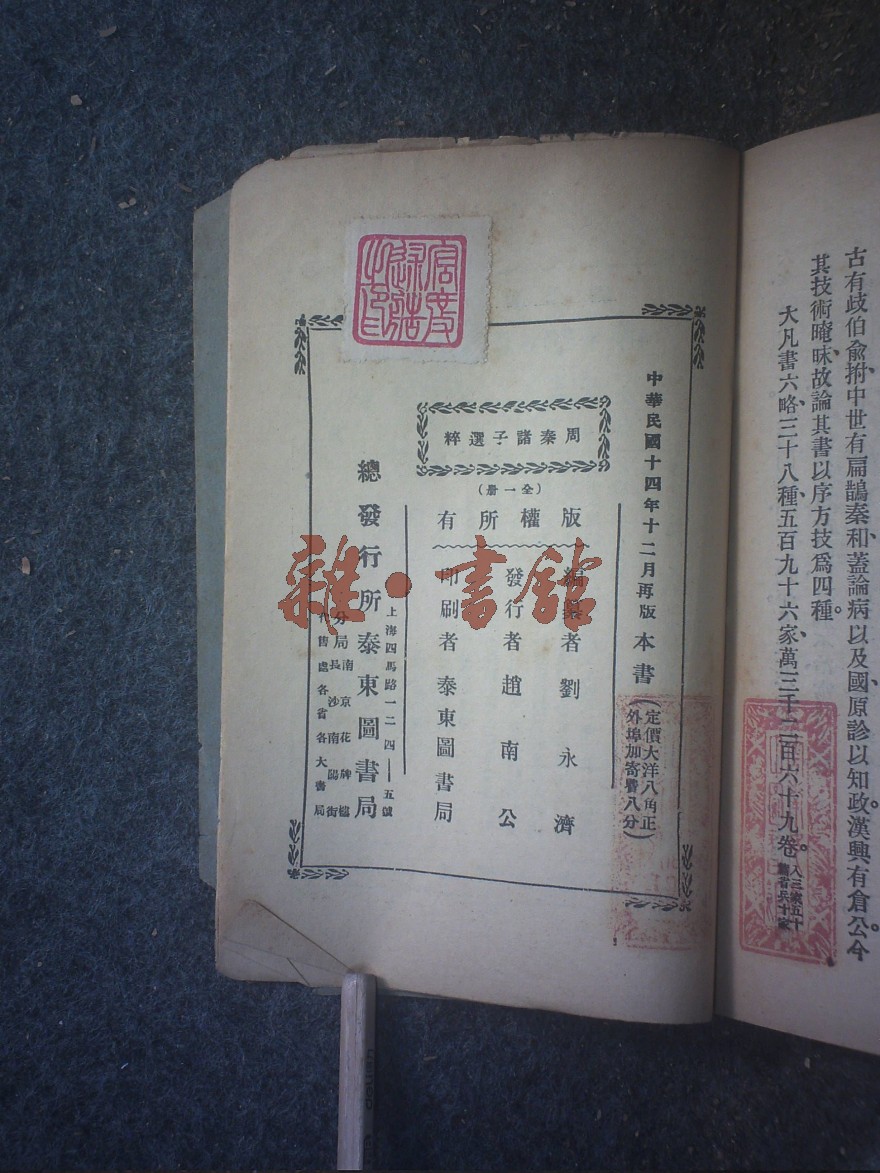 古有歧伯俞拊中世有扁鵲秦和蓋論病以及國原診以知政漢興有倉公今
其技術晻昧故論其書以序方技爲四種。
大凡書六略三十八種五百九十六家萬三千二百六十九卷。
入三家五十
篇省兵十家
中華民國十四年十二月再版
本書
定價大洋八角正
外埠加寄費八分
周秦諸子選粹
(全一册)
版權所有
編纂者劉永濟
發行者趙南公
印刷者泰東圖書局
上海四馬路一二四——五號
總發行所泰東圖書局
分局
南京花牌樓
長沙南陽街
代售處各省各大書局
雜·書館